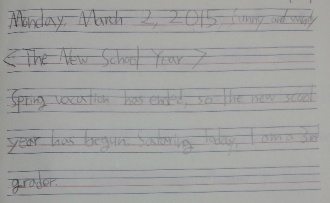 Monday, March 2, 2015. Sunny and windy
< The New School Year >
Spring vocation has end, so the new scool
year has begun. Today, I am a 3rd
grader.